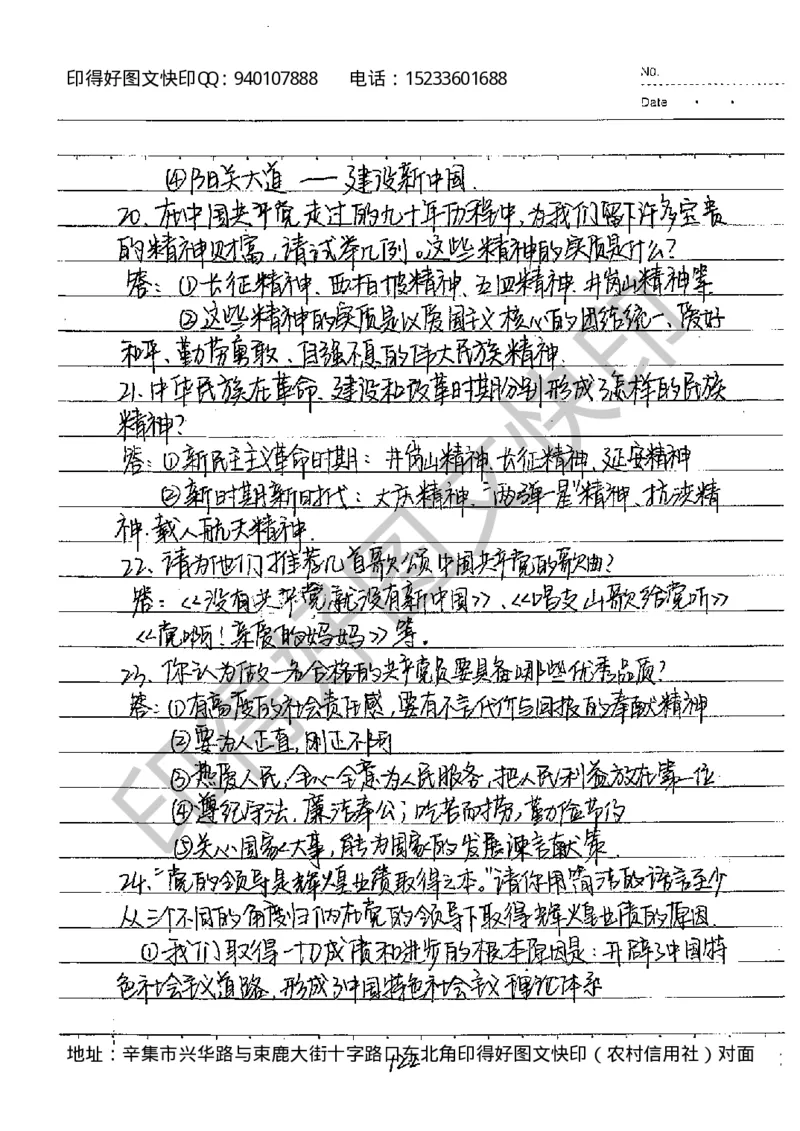 印得好图文快印QQ：940107888 电话：15233601688
No.
Date
④阳关大道 —— 建设新中国.
20、在中国共产党走过的九十年历程中，为我们留下许多宝贵
的精神财富，请试举几例。这些精神的实质是什么？
答：①长征精神、西柏坡精神、五四精神、井岗山精神等
②这些精神的实质是以爱国主义核心的团结统一、爱好
和平、勤劳勇敢、自强不息的伟大民族精神.
21、中华民族在革命、建设和改革时期分别形成了怎样的民族
精神？
答：①新民主主义革命时期：井岗山精神、长征精神、延安精神
②新时期新时代：大庆精神、“两弹一星”精神、抗洪精
神、载人航天精神.
22、请为他们推荐几首歌颂中国共产党的歌曲？
答：《没有共产党就没有新中国》、《唱支山歌给党听》
《党啊！亲爱的妈妈》等。
23、你认为做一名合格的共产党员要具备哪些优秀品质？
答：①有高度的社会责任感，要有不言代价与回报的奉献精神
②要为人正直，刚正不阿
③热爱人民，全心全意为人民服务，把人民利益放在第一位
④遵纪守法，廉洁奉公；吃苦而劳，勤俭节约
⑤关心国家大事，能为国家的发展谏言献策.
24、“党的领导是辉煌业绩取得之本。”请你用简洁的语言至少
从三个不同的角度归纳在党的领导下取得辉煌业绩的原因.
①我们取得一切成绩和进步的根本原因是：开辟了中国特
色社会主义道路，形成了中国特色社会主义理论体系
地址：辛集市兴华路与束鹿大街十字路口东北角印得好图文快印（农村信用社）对面
122
印得好图文快印